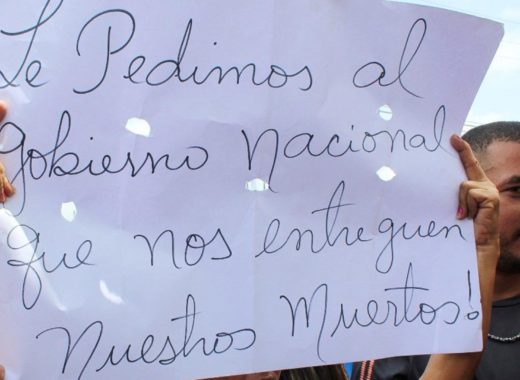 Le Pedimos al
Gobierno Nacional
que nos entreguen
Nuestros Muertos!